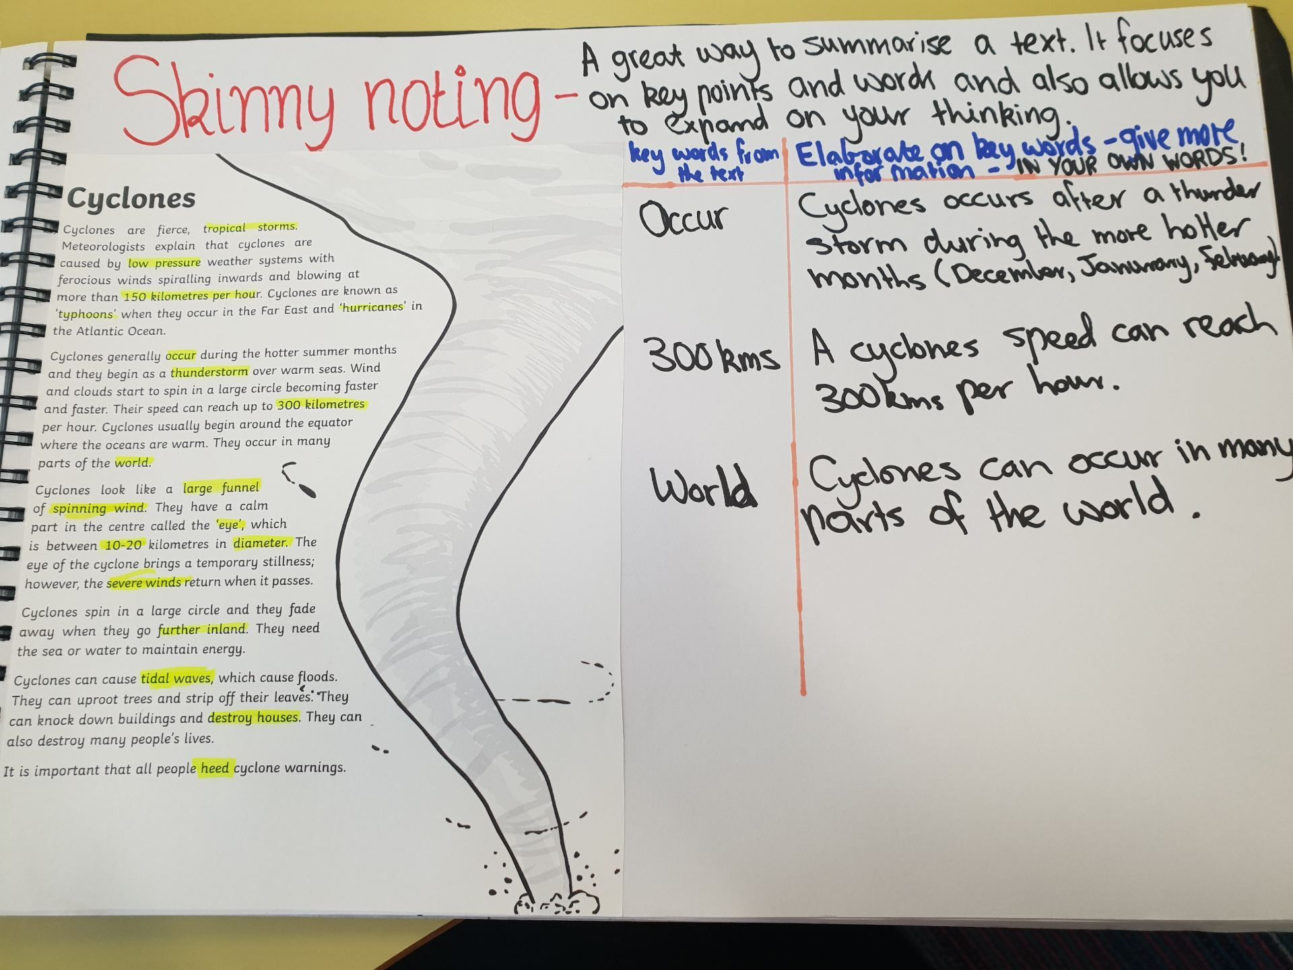 Skinny noting - A great way to summarise a text. It focuses
on key points and words and also allows you
to expand on your thinking.
Cyclones
Cyclones are fierce, tropical storms.
Meteorologists explain that cyclones are
caused by low pressure weather systems with
ferocious winds spiralling inwards and blowing at
more than 150 kilometres per hour. Cyclones are known as
'typhoons' when they occur in the Far East and 'hurricanes' in
the Atlantic Ocean.
Cyclones generally occur during the hotter summer months
and they begin as a thunderstorm over warm seas. Wind
and clouds start to spin in a large circle becoming faster
and faster. Their speed can reach up to 300 kilometres
per hour. Cyclones usually begin around the equator
where the oceans are warm. They occur in many
parts of the world.
Cyclones look like a large funnel
of spinning wind. They have a calm
part in the centre called the 'eye', which
is between 10-20 kilometres in diameter. The
eye of the cyclone brings a temporary stillness;
however, the severe winds return when it passes.
Cyclones spin in a large circle and they fade
away when they go further inland. They need
the sea or water to maintain energy.
Cyclones can cause tidal waves, which cause floods.
They can uproot trees and strip off their leaves. They
can knock down buildings and destroy houses. They can
also destroy many people's lives.
It is important that all people heed cyclone warnings.
key words from
the text
Elaborate on key words - give more
information - IN YOUR OWN WORDS!
Occur
Cyclones occurs after a thunder
storm during the more hotter
months (December, Janurary,
300kms
A cyclones speed can reach
300kms per hour.
World
Cyclones can occur in many
parts of the world.